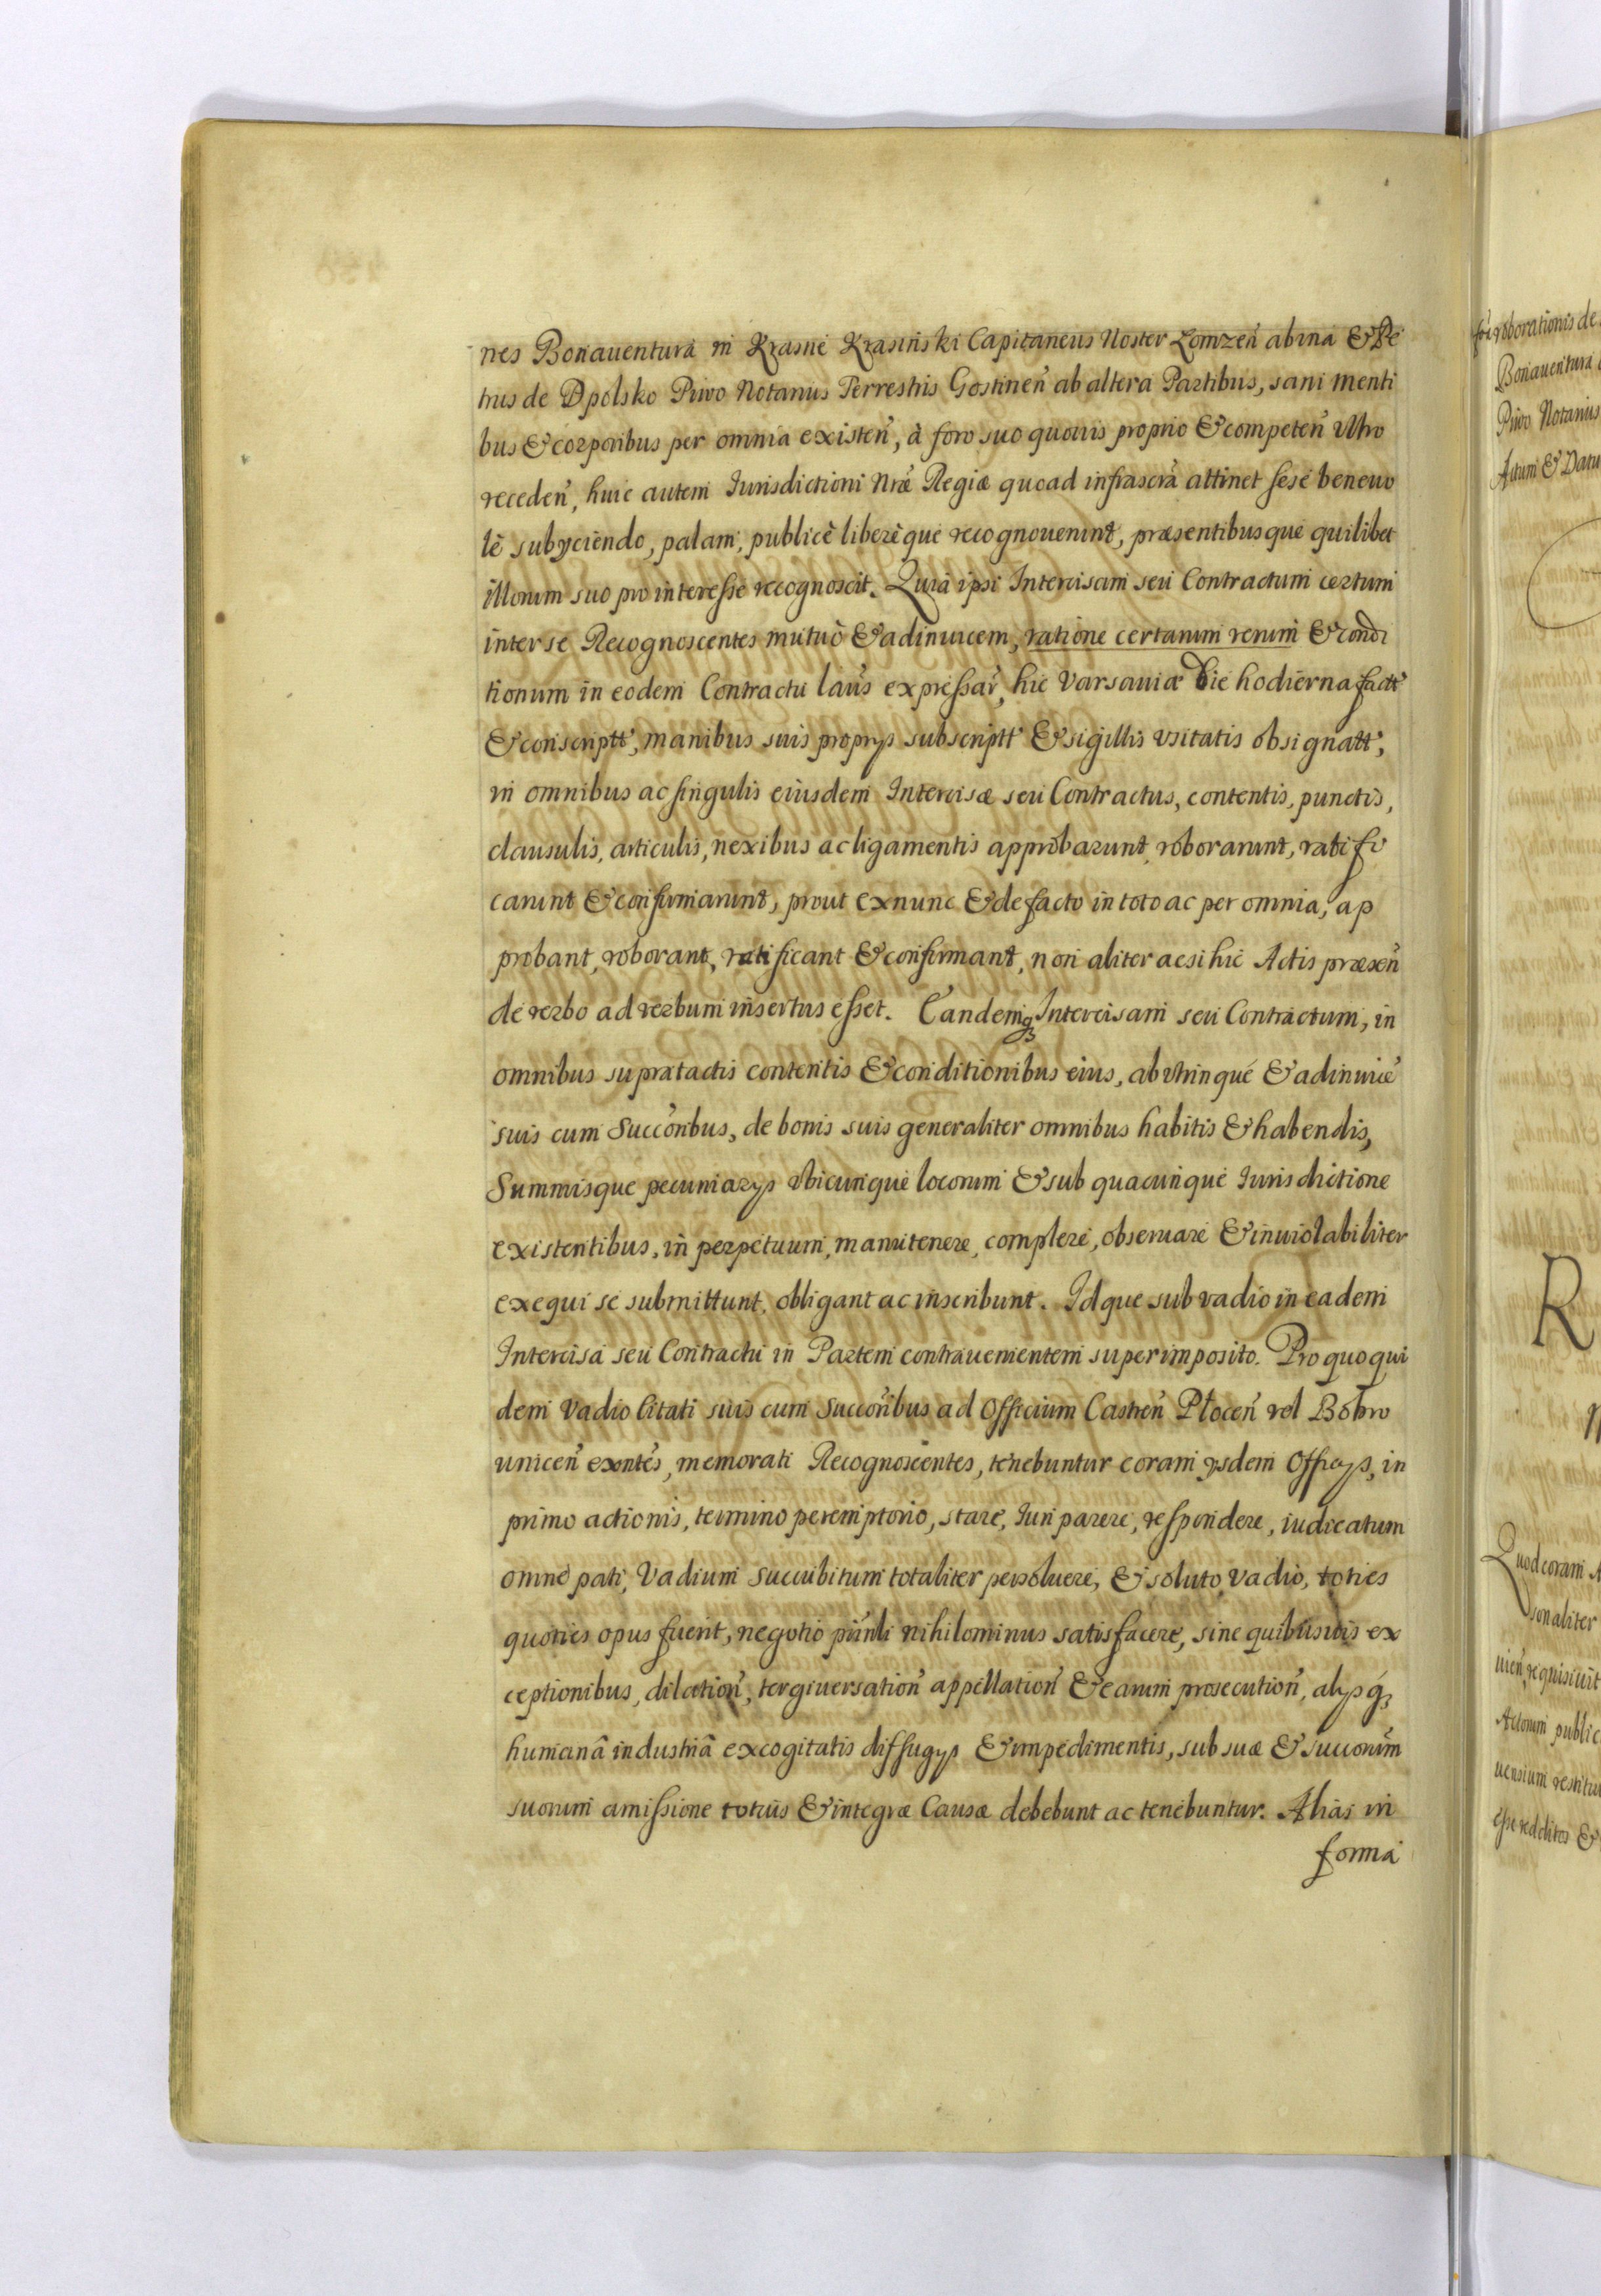 nes Bonauentura in Krasne Krasinski Capitaneus Noster Lomzeń ab una & Pe
trus de Opolsko Piwo Notarius Terrestris Gostineń ab altera Partibus, sani menti
bus & corporibus per omnia existeń, à foro suo quouis proprio & competeń vltro
recedeń, huic autem Iurisdictioni Nræ Regiæ quoad infrascrā attinet sese beneuo
lè subyciendo, palam, publicè liberèque recognouerunt, præsentibusque quilibet
illorum suo pro interesse recognoscit. Quia ipsi Intercisam seu Contractum certum
inter se Recognoscentes mutuò & adinuicem, ratione certarum rerum & condi
tionum in eodem Contractu latiùs expressar̃, hic Varsauiæ Die hodierna fact̃
& conscript̃t, manibus suis proprys subscript̃t & sigillis vsitatis obsignatt̃,
in omnibus ac singulis eiusdem Intercisæ seu Contractus, contentis, punctis,
clausulis, articulis, nexibus ac ligamentis approbarunt, roborarunt, ratifi
carunt & confirmarunt, prout ex nunc & de facto in toto ac per omnia, ap
probant, roborant, ratificant & confirmant, non aliter acsi hic Actis præseń
de verbo ad verbum insertus esset. Eandemqꝫ Intercisam seu Contractum, in
omnibus supratactis contentis & conditionibus eius, ab vtrinque & adinuicē
suis cum Succõribus, de bonis suis generaliter omnibus habitis & habendis,
Summisque pecuniarys vbicunque locorum & sub quacunque Iurisdictione
existentibus, in perpetuum, manutenere, complere, obseruare & inuiolabiliter
exequi se submittunt, obligant ac inscribunt. Idque sub vadio in eadem
Intercisa seu Contractu in Partem contrauenientem superimposito. Pro quo qui
dem Vadio Citati suis cum Succõribus ad Officium Castreń Płoceń vel Bobro
uniceń exñtes, memorati Recognoscentes, tenebuntur coram ysdem Officys, in
primo actionis, termino peremptorio, stare, Iuri parere, respondere, iudicatum
omne pati, Vadium succubitum totaliter persoluere, & soluto vadio, toties
quoties opus fuerit, negotio pñnti nihilominus satisfacere, sine quibusuis ex
ceptionibus, dilation̄, tergiuersation̄ appellation̄ & earum prosecution̄, alysqꝫ
humanâ industriâ excogitatis diffugys & impedimentis, sub suæ & succorum̃
suorum amissione totius & integræ Causæ debebunt ac tenebuntur. Alias in
forma
fõi roborationis de
Bonauentura
Piwo Notarius
Actum & Datu
R
Quod coram A
sonaliter
nień requisiuit
Actorum public
uensium restitu
esse redditos &